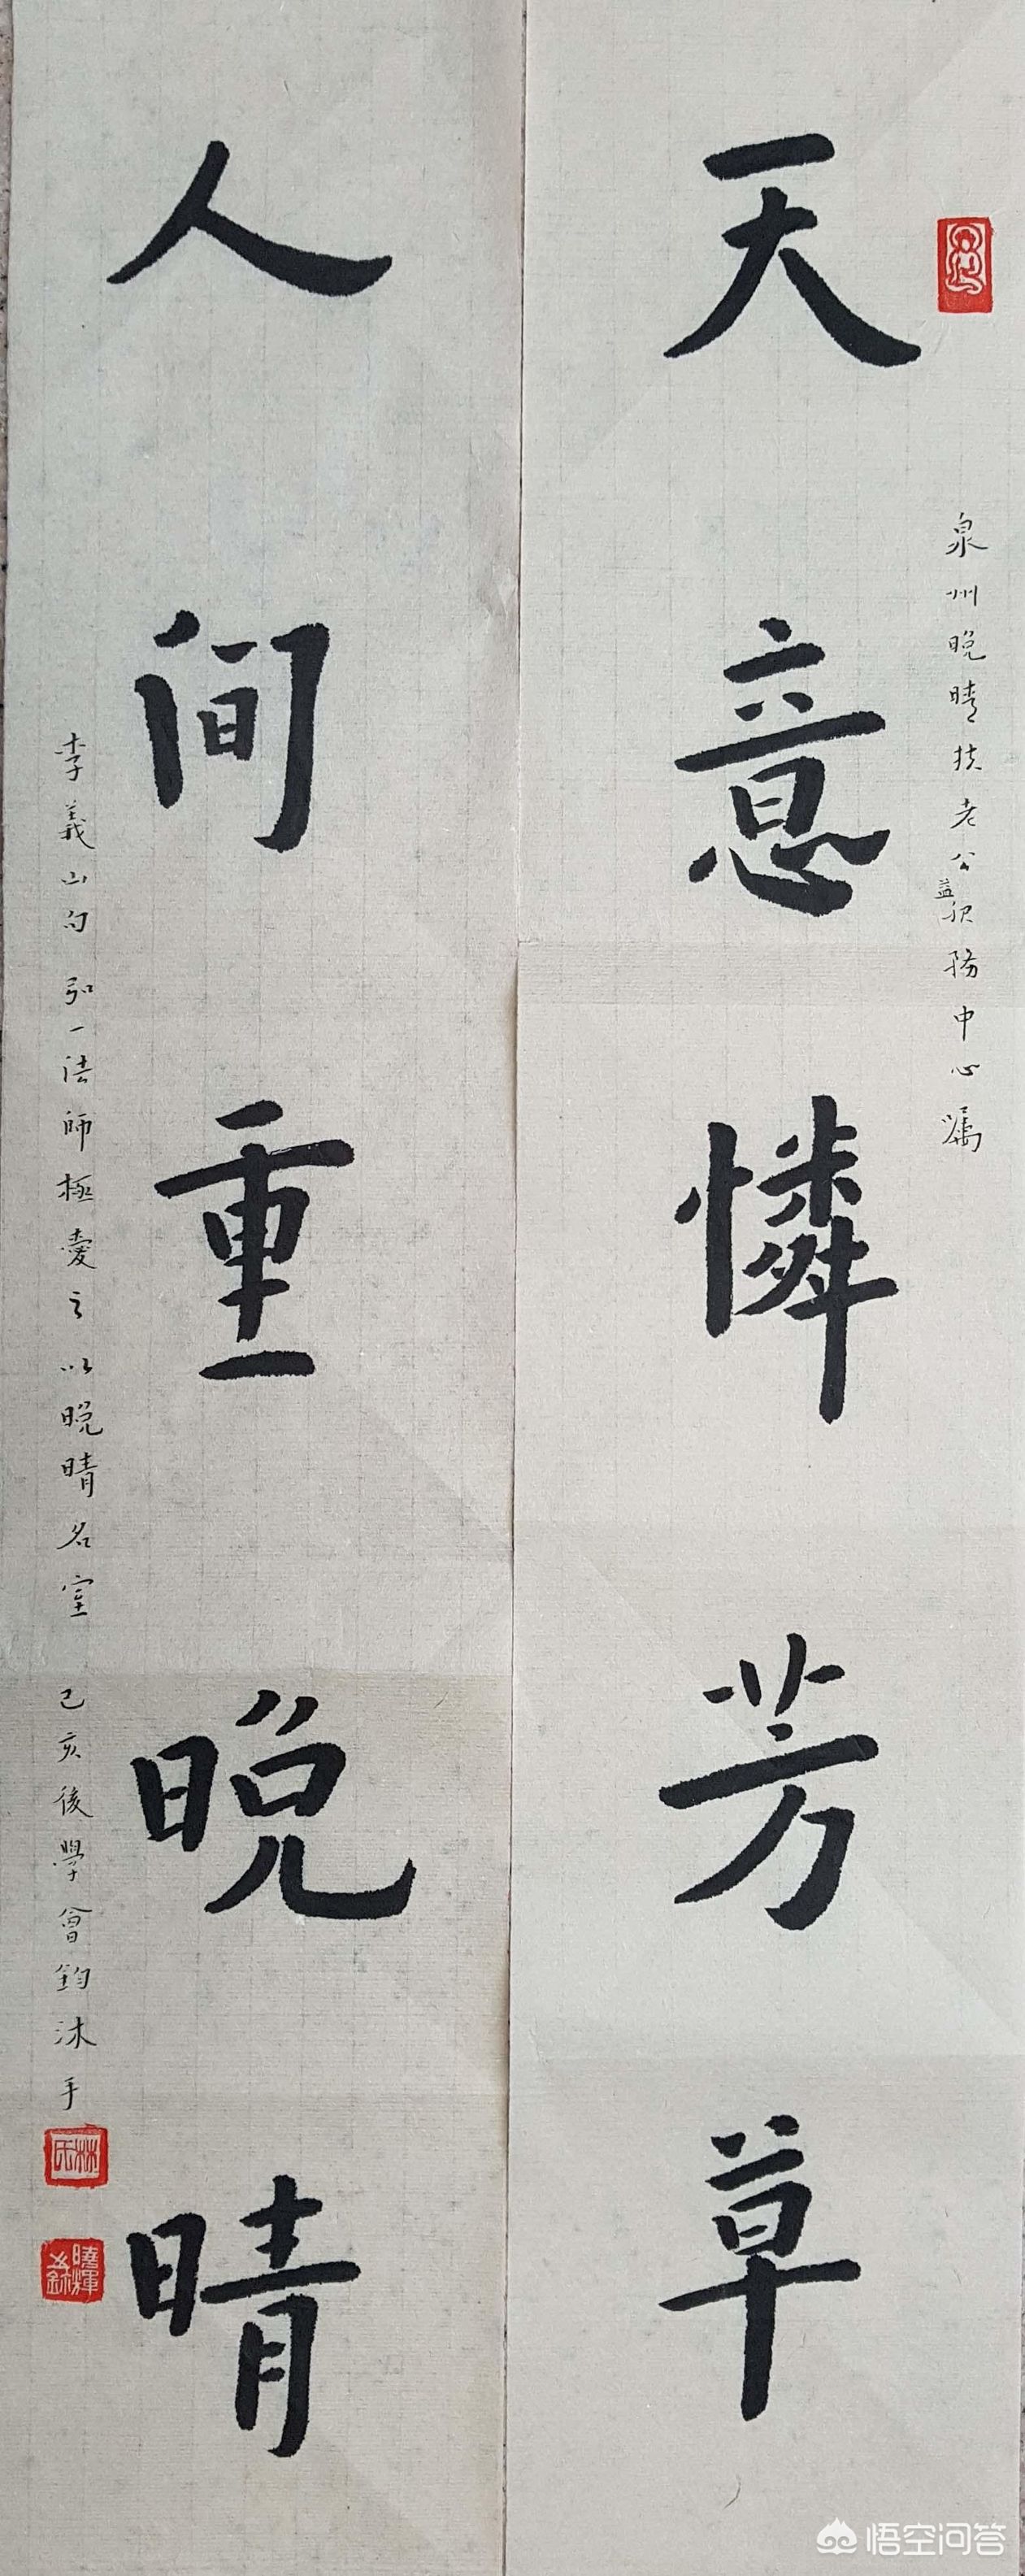 泉州晚晴扶老公益服務中心嘱
天意憐芳草
人间重晚晴
李義山句 弘一法師極愛之 以晚晴名室 己亥後學曾鈞沐手
林氏
曉輝
悟空问答